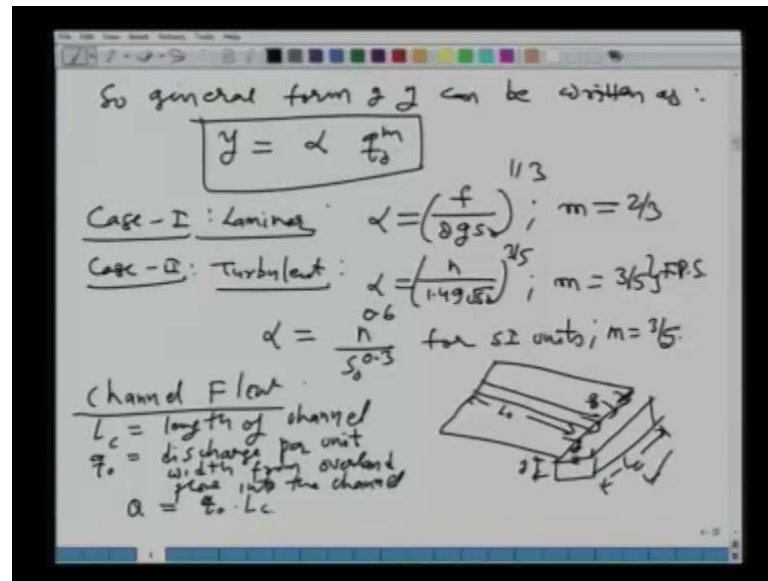 File Edit View Insert Actions Tools Help
So general form of y can be written as :
y = α q₀^m
Case-I : Laminar : α = (f / 8gS₀)^1/3 ; m = 2/3
Case-II : Turbulent : α = (n / 1.49√S₀)^3/5 ; m = 3/5} F.P.S
α = n^0.6 / S₀^0.3 for SI units ; m = 3/5.
Channel Flow
L_c = length of channel
q₀ = discharge per unit
width from overland
plane into the channel
Q = q₀ . L_c
L₀
L_c